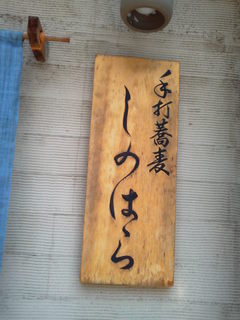 手打蕎麦
しのはら